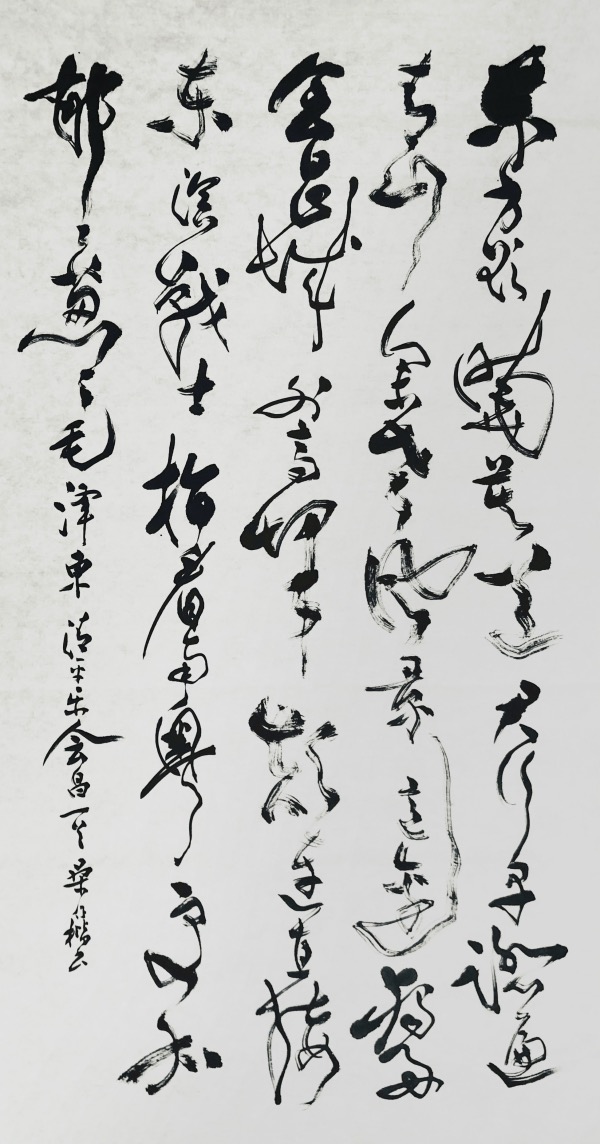 东方欲曉莫道君行早踏遍
青山人未老风景這邊獨好
会昌城外高峰颠连直接
东溟战士指看南粤更加
郁々葱々毛泽东清平乐会昌一首